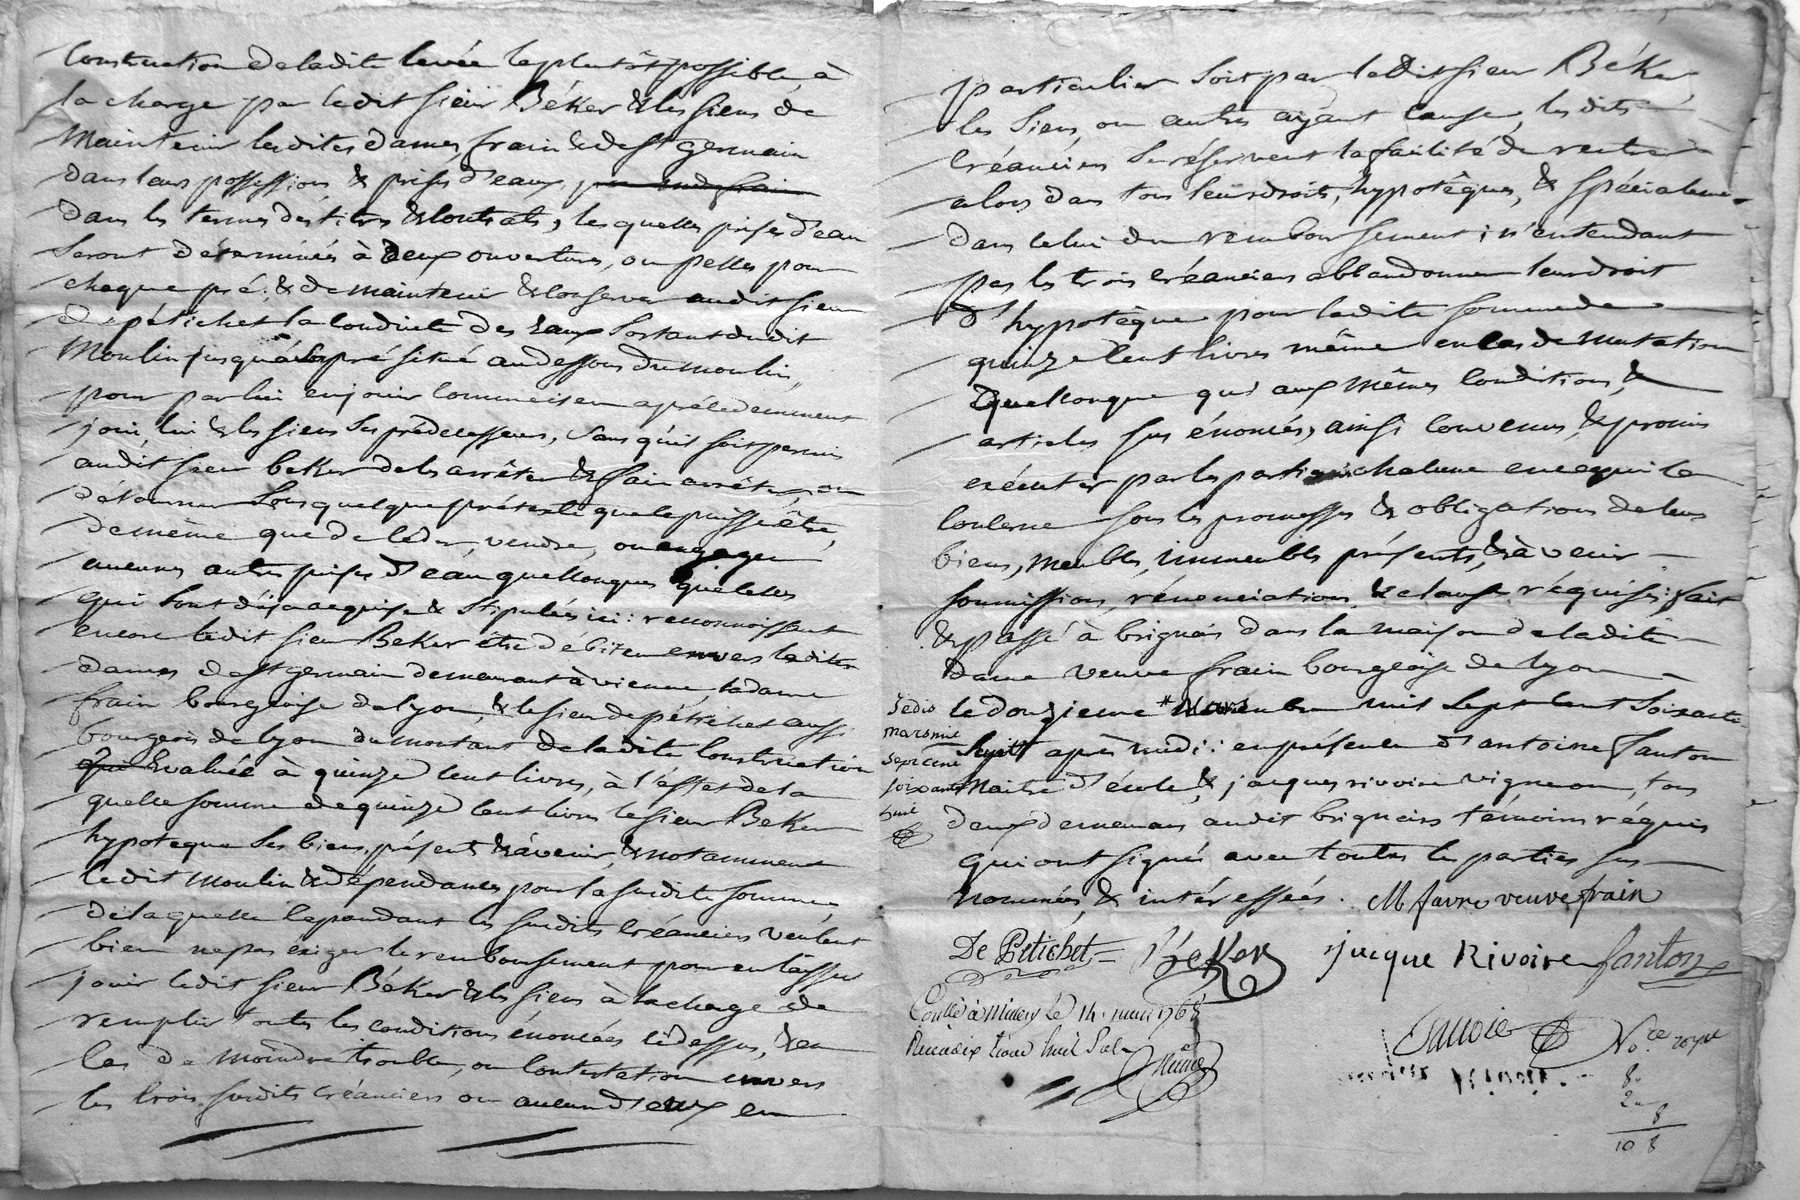 Construction de ladite levée le plustôt possible, à
la charge par ledit sieur Béker & les siens de
Maintenir lesdites dames, frain & de st germain
dans leurs possessions, & prises d'eaux,
dans les termes des titres & contrats, les quelles prises d'eau
seront déterminées à deux ouvertures, ou pelles pour
chaque pré; & de maintenir & conserver audit sieur
de pétichet la conduite des eaux sortant dudit
Moulin jusqu'à son pré situé au dessous du moulin,
pour par lui en jouir comme il en a précédemment
joui, lui & les siens ses prédécesseurs, sans qu'il soit permis
audit sieur beker de les arrêter & faire arrêter, ou
détourner sous quelque prétexte que ce puisse être,
de même que de céder, vendre, ou engager
aucunes autres prises d'eau quelconques que celles
qui sont déja acquise & stipulées ici: reconnoissant
encore ledit sieur Béker être débiteur envers lesdites
dames de st germain demeurant à vienne, la dame
frain bourgeoise de lyon, & le sieur de pétichet aussi
bourgeois de lyon du montant de ladite construction
Evaluée à quinze cent livres, à l'effet de la
quelle somme de quinze cent livres le sieur Béker
hypoteque ses biens présents & àvenir, & notamment
ledit Moulin & dépendances pour la susdite somme
de laquelle cependant les susdits créanciers veulent
bien ne pas exiger le remboursement pour en laisser
jouir ledit sieur Béker & les siens à la charge de
remplir toutes les conditions énoncées cidessus, & en
cas de moindre trouble, ou contestation envers
les trois susdits créanciers ou aucun d'eux en
particulier soit par ledit sieur Béker
les siens, ou autres ayant cause, les dits
créanciers se réservent la facilité de rentrer
alors dans tous leurs droits, hypotèques, & spécialement
dans celui du remboursement; n'entendant
pas les trois créanciers abbandonner leur droit
d'hypotèque pour ladite somme de
quinze cent livres même en cas de mutation
quelconque qu'aux mêmes conditions, &
articles sus énoncés, ainsi convenus, & promis
exécuter par les parties chacune en ce qui le
concerne sous les promesses & obligations de leurs
biens, meubles, immeubles présents, & à venir
soumissions, rénonciations, & clauses réquises: fait
& passé à brignais dans la maison de ladite
Dame veuve frain bourgeoise de lyon
le douzieme * mil sept cent soixante
huit après midi: en présence d'antoine fanton
Maitre d'école, & jacques rivoire vigneron, tous
deux demeurans audit brignais témoins réquis
qui ont signés avec toutes les parties sus
nommées, & intéressées. M favre veuve frain
* je dis
mars mil
sept cent
soixante
huit
De Petichet Béker jacque Rivoire fanton
Conllé à Millery le 14. mars 1768
Reçu dix sous huit
Notre royal
8
2
8
10 8